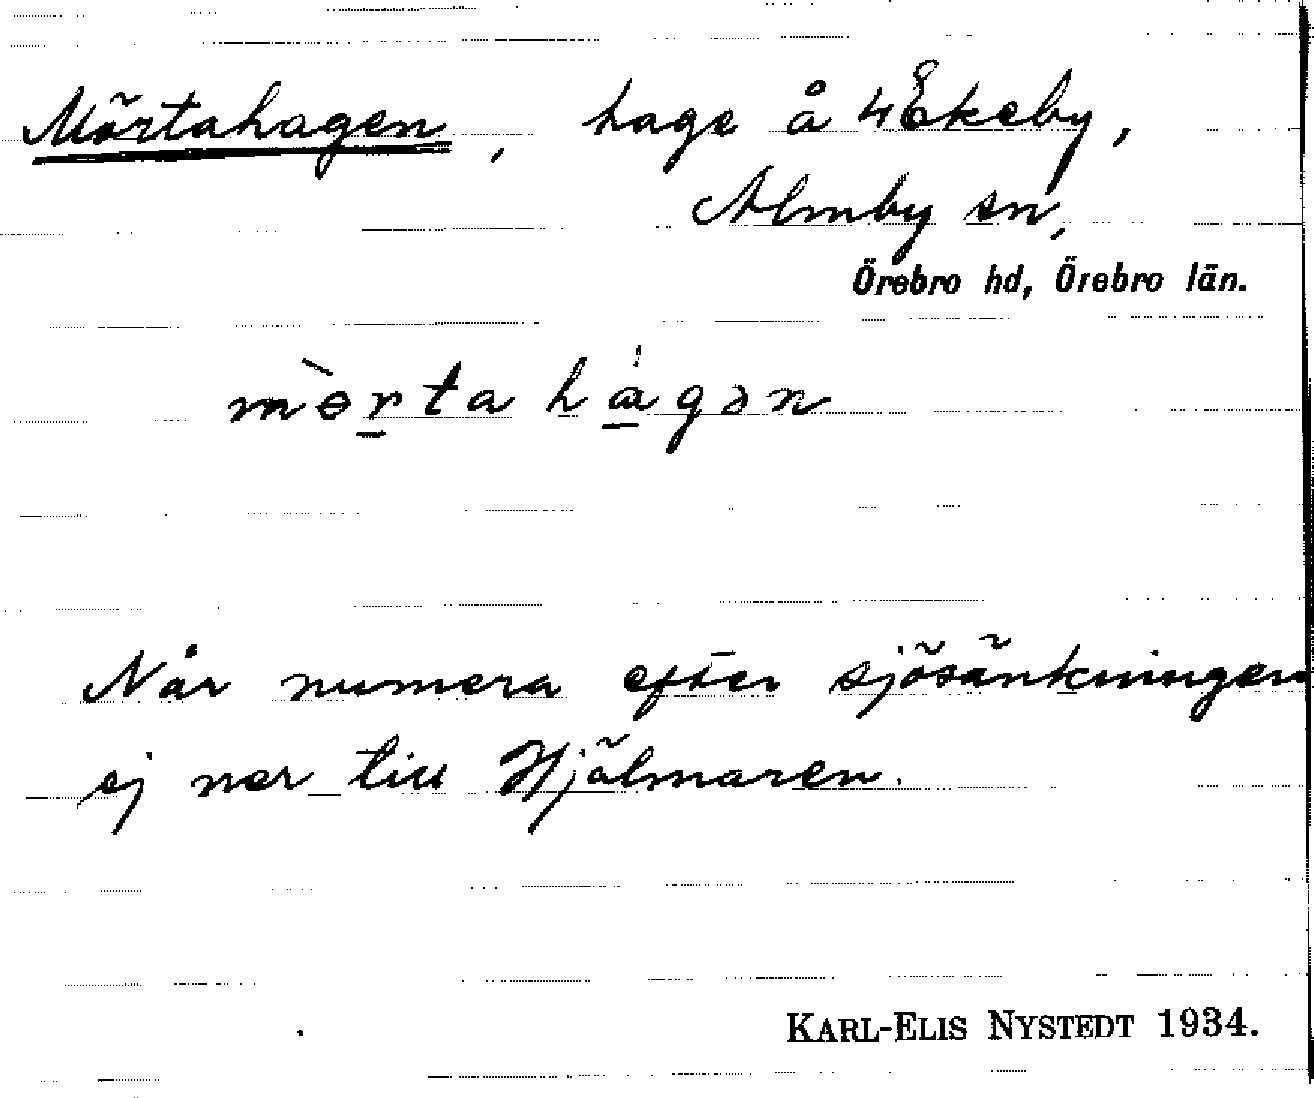 Mörtahagen, hage å 4 Ekeby,
Almby sn,
Örebro hd, Örebro län.
mòrta hágən
Når numera efter sjösänkningen
ej ner till Hjälmaren.
KARL-ELIS NYSTEDT 1934.